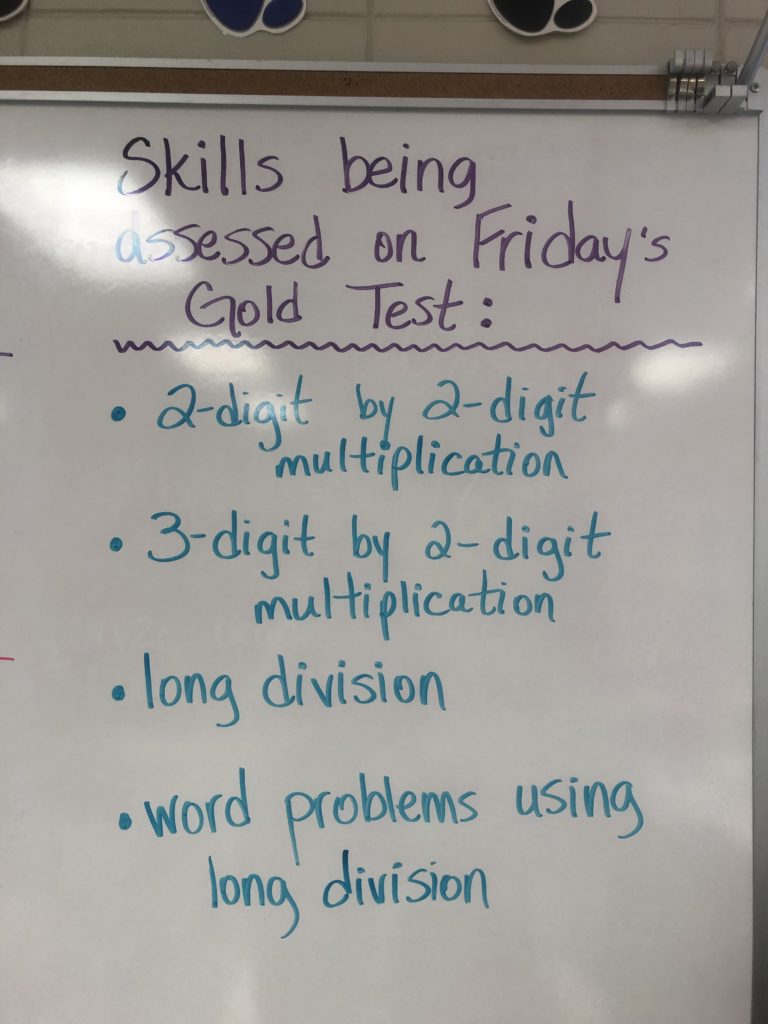 Skills being
assessed on Friday's
Gold Test:
• 2-digit by 2-digit
multiplication
• 3-digit by 2-digit
multiplication
• long division
• word problems using
long division